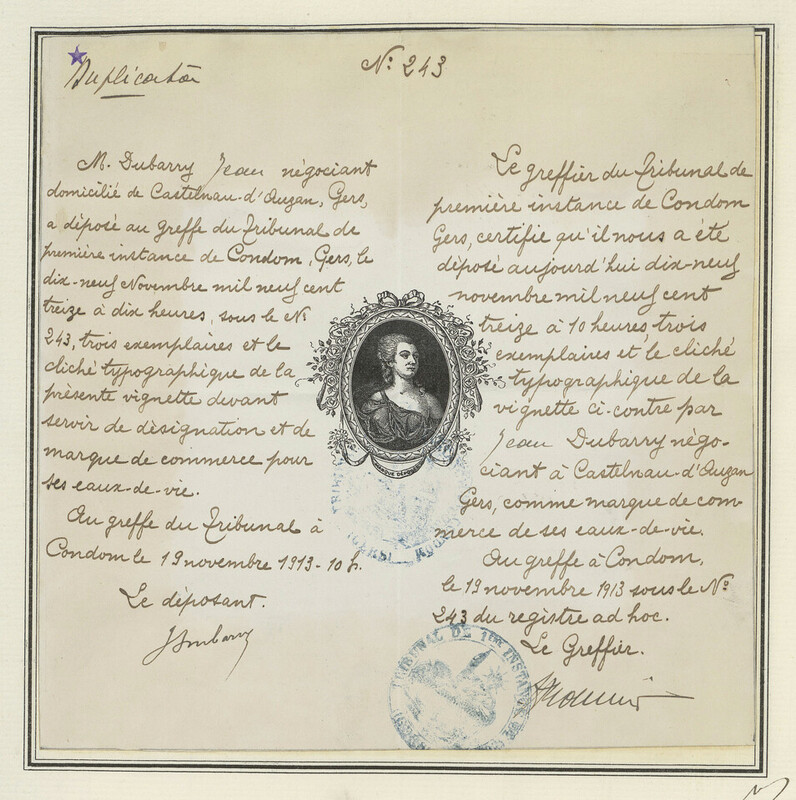 Duplicata
N° 243
M. Dubarry Jean négociant
domicilié de Castelnau-d'Auzan, Gers,
a déposé au greffe du Tribunal de
première instance de Condom, Gers, le
dix-neuf Novembre mil neuf cent
treize à dix heures, sous le N°
243, trois exemplaires et le
cliché typographique de la
présente vignette devant
servir de désignation et de
marque de commerce pour
ses eaux-de-vie.
Au greffe du Tribunal à
Condom le 19 novembre 1913 - 10 h.
Le déposant.
J Dubarry
MARQUE DÉPOSÉE
Le greffier du Tribunal de
première instance de Condom
Gers, certifie qu'il nous a été
déposé aujourd'hui dix-neuf
novembre mil neuf cent
treize à 10 heures trois
exemplaires et le cliché
typographique de la
vignette ci-contre par
Jean Dubarry négo-
ciant à Castelnau-d'Auzan
Gers, comme marque de com-
merce de ses eaux-de-vie.
Au greffe à Condom,
le 19 novembre 1913 sous le N°
243 du registre ad hoc.
Le Greffier.
TRIBUNAL DE 1ère INSTANCE DE